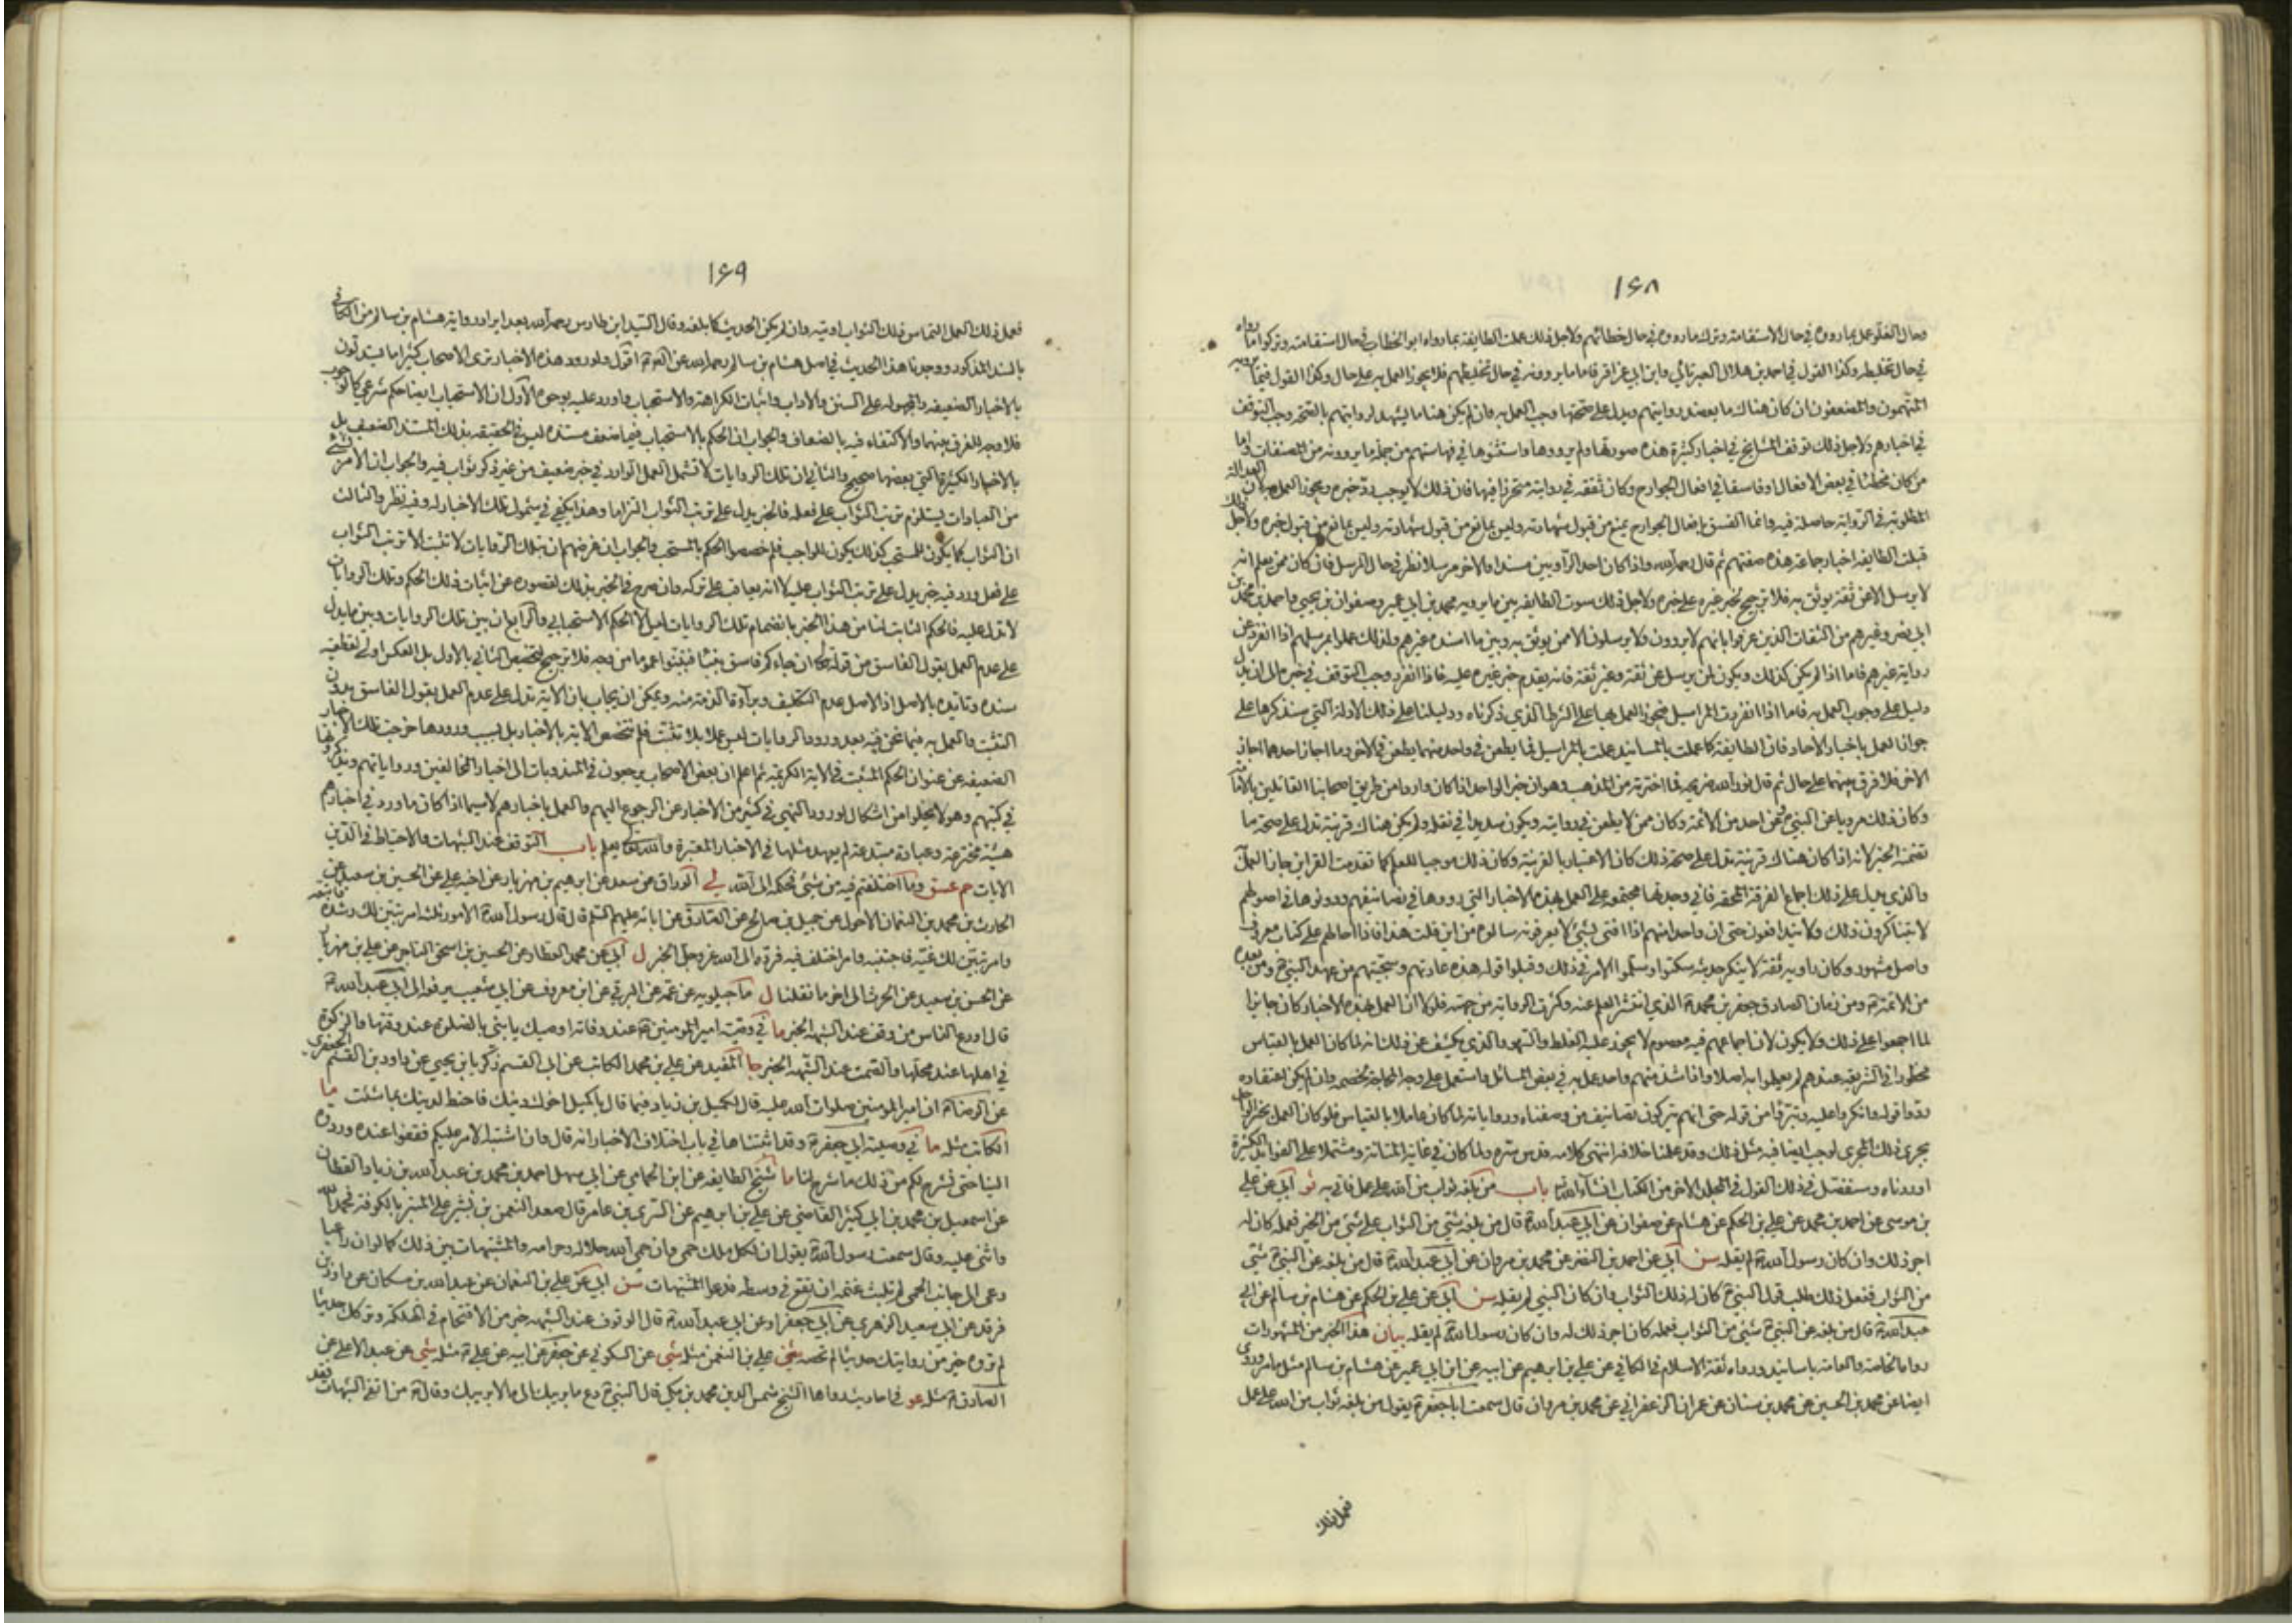 ١٦٨
وحال الغلو عمل بما رووه في حال الاستقامة وترك ما رووه في حال خطائهم ولاجل ذلك عملت الطايفة بما رواه ابو الخطاب في حال استقامته وتركوا ما رواه
في حال تخليطه وكذا القول في احمد بن هلال العبرتائي وابن ابي عزاقر فاما ما يروونه في حال تخليطهم فلا يجوز العمل به على حال وكذا القول فيما يرويه
المتهمون والمضعفون ان كان هناك ما يعضد روايتهم ويدل على صحتها وجب العمل به وان لم يكن هناك ما يشهد لروايتهم بالصحة وجب التوقف
في اخبارهم ولاجل ذلك توقف المشايخ في اخبار كثيرة هذه صورتها ولم يرووها واستثنوها في فهارستهم من جملة ما يروونه من المصنفات واما
من كان مخطئا في بعض الافعال او فاسقا في افعال الجوارح وكان ثقة في روايته متحرزا فيها فان ذلك لا يوجب رد خبره ويجوز العمل به لان العدالة
المطلوبة في الرواية حاصلة فيه وانما الفسق بافعال الجوارح يمنع من قبول شهادته وليس بمانع من قبول خبره ولاجل ذلك
قبلت الطايفة اخبار جماعة هذه صفتهم ثم قال رحمه الله واذا كان احد الراويين مسندا والاخر مرسلا نظر في حال المرسل فان كان ممن يعلم انه
لا يرسل الا عن ثقة يوثق به فلا ترجيح لخبر غيره على خبره ولاجل ذلك سوت الطايفة بين ما يرويه محمد بن ابي عمير وصفوان بن يحيى واحمد بن محمد بن
ابي نصر وغيرهم من الثقات الذين عرفوا بانهم لا يروون ولا يرسلون الا ممن يوثق به وبين ما اسنده غيرهم ولذلك عملوا بمرسلهم اذا انفرد عن
رواية غيرهم فاما اذا لم يكن كذلك ويكون ممن يرسل عن ثقة وغير ثقة فانه يقدم خبر غيره عليه فاذا انفرد وجب التوقف في خبره الى ان يدل
دليل على وجوب العمل به فاما اذا انفردت المراسيل فيجوز العمل بها على الشرط الذي ذكرناه ودليلنا على ذلك الادلة التي سنذكرها على
جواز العمل باخبار الاحاد فان الطايفة كما عملت بالمسانيد عملت بالمراسيل فما يطعن في واحد منهما يطعن في الاخر وما اجاز احدهما اجاز
الاخر فلا فرق بينهما على حال ثم قال نور الله ضريحه فما اخترته من المذهب وهو ان خبر الواحد اذا كان واردا من طريق اصحابنا القائلين بالامامة
وكان ذلك مرويا عن النبي ص او عن احد من الائمة وكان ممن لا يطعن في روايته ويكون سديدا في نقله ولم يكن هناك قرينة تدل على صحة ما
تضمنه الخبر لانه اذا كان هناك قرينة تدل على صحة ذلك كان الاعتبار بالقرينة وكان ذلك موجبا للعلم كما تقدمت القراين جاز العمل به
والذي يدل على ذلك اجماع الفرقة المحقة فاني وجدتها مجتمعة على العمل بهذه الاخبار التي رووها في تصانيفهم ودونوها في اصولهم
لا يتناكرون ذلك ولا يتدافعون حتى ان واحدا منهم اذا افتى بشيء لا يعرفونه سالوه من اين قلت هذا فاذا احالهم على كتاب معروف
واصل مشهور وكان راويه ثقة لا ينكر حديثه سكتوا وسلموا الامر في ذلك وقبلوا قوله هذه عادتهم وسجيتهم من عهد النبي ص ومن بعده
من الائمة ع ومن زمان الصادق جعفر بن محمد ع الذي انتشر العلم عنه وكثرت الرواية من جهته فلولا ان العمل بهذه الاخبار كان جايزا
لما اجمعوا على ذلك ولا يكون لان اجماعهم فيه معصوم لا يجوز عليه الغلط والسهو والذي يكشف عن ذلك انه لما كان العمل بالقياس
محظورا في الشريعة عندهم لم يعملوا به اصلا واذا شذ منهم واحد عمل به في بعض المسائل واستعمل على وجه المحاجة لخصمه وان لم يكن اعتقاده
ردوا قوله وانكروا عليه وتبرؤا من قوله حتى انهم يتركون تصانيف من وصفناه ورواياته لما كان عاملا بالقياس فلو كان العمل بخبر الواحد
يجري ذلك المجرى لوجب ايضا فيه مثل ذلك وقد علمنا خلافه انتهى كلامه قدس سره ولما كان في غاية المتانة ومشتملا على الفوايد الكثيرة
اوردناه وسنفصل في ذلك القول في المجلد الاخر من الكتاب انشاء الله تع باب من بلغه ثواب من الله على عمل فاتى به ثو ابي عن علي
بن موسى عن احمد بن محمد عن علي بن الحكم عن هشام عن صفوان عن ابي عبد الله ع قال من بلغه شيء من الثواب على شيء من الخير فعمله كان له
اجر ذلك وان كان رسول الله ص لم يقله سن ابي عن احمد بن النضر عن محمد بن مروان عن ابي عبد الله ع قال من بلغه عن النبي ص شيء
من الثواب ففعل ذلك طلب قول النبي ص كان له ذلك الثواب وان كان النبي لم يقله سن ابي عن علي بن الحكم عن هشام بن سالم عن ابي
عبد الله ع قال من بلغه عن النبي ص شيء من الثواب فعمله كان اجر ذلك له وان كان رسول الله ص لم يقله بيان هذا الخبر من المشهورات
رواه الخاصة والعامة باسانيد ورواه ثقة الاسلام في الكافي عن علي بن ابراهيم عن ابيه عن ابن ابي عمير عن هشام بن سالم مثل ما مر وروى
ايضا عن محمد بن الحسين عن محمد بن سنان عن عمران الزعفراني عن محمد بن مروان قال سمعت ابا جعفر ع يقول من بلغه ثواب من الله على عمل
فعمل ذلك
١٦٩
فعمل ذلك العمل التماس ذلك الثواب اوتيه وان لم يكن الحديث كما بلغه وقال السيد ابن طاوس رحمه الله بعد ايراد رواية هشام بن سالم من الكافي
بالسند المذكور ووجدنا هذا الحديث في اصل هشام بن سالم رحمه الله عن الصادق ع اقول ولورود هذه الاخبار ترى الاصحاب كثيرا ما يستدلون
بالاخبار الضعيفة والمجهولة على السنن والاداب واثبات الكراهة والاستحباب واورد عليه بوجوه الاول ان الاستحباب ايضا حكم شرعي كالوجوب
فلا وجه للفرق بينهما والاكتفاء فيه بالضعاف والجواب ان الحكم بالاستحباب فيما ضعف مستنده ليس في الحقيقة بذلك المستند الضعيف بل
بالاخبار الكثيرة التي بعضها صحيح والثاني ان تلك الروايات لا تشمل العمل الوارد في خبر ضعيف من غير ذكر ثواب فيه والجواب ان الامر بشيء
من العبادات يستلزم ترتب الثواب على فعله فالخبر يدل على ترتب الثواب التزاما وهذا يكفي في شمول تلك الاخبار له وفيه نظر والثالث
ان الثواب كما يكون للمستحب كذلك يكون للواجب فلم خصصوا الحكم بالمستحب والجواب ان غرضهم ان بتلك الروايات لا تثبت الا ترتب الثواب
على فعل ورد فيه خبر يدل على ترتب الثواب عليه لا انه يعاقب على تركه وان صرح في الخبر بذلك لقصوره عن اثبات ذلك الحكم وتلك الروايات
لا تدل عليه فالحكم الثابت لنا من هذا الخبر بانضمام تلك الروايات ليس الا الحكم الاستحبابي والرابع ان بين تلك الروايات وبين ما يدل
على عدم العمل بقول الفاسق من قوله تع ان جاءكم فاسق بنبأ فتبينوا عموما من وجه فلا ترجيح لتخصيص الثاني بالاول بل العكس اولى لقطعية
سنده وتايده بالاصل اذ الاصل عدم التكليف وبراءة الذمة منه ويمكن ان يجاب بان الاية تدل على عدم العمل بقول الفاسق بدون
التثبت والعمل به فيما نحن فيه بعد ورود الروايات ليس عملا بلا تثبت فلم تخصص الاية بالاخبار بل بسبب ورودها خرجت تلك الاخبار
الضعيفة عن عنوان الحكم المثبت في الاية الكريمة ثم اعلم ان بعض الاصحاب يرجعون في المندوبات الى اخبار المخالفين ورواياتهم ويذكرونها
في كتبهم وهو لا يخلو من اشكال لورود النهي في كثير من الاخبار عن الرجوع اليهم والعمل باخبارهم لاسيما اذا كان ما ورد في اخبارهم
هيئة مخترعة وعبادة مبتدعة لم يعهد مثلها في الاخبار المعتبرة والله تع يعلم باب التوقف عند الشبهات والاحتياط في الدين
الايات حمعسق وما اختلفتم فيه من شيء فحكمه الى الله لي الوراق عن سعد عن ابراهيم بن مهزيار عن اخيه علي عن الحسين بن سعيد عن
الحارث بن محمد بن النعمان الاحول عن جميل بن صالح عن الصادق عن ابائه عليهم السلم قال قال رسول الله ص الامور ثلثة امر تبين لك رشده فاتبعه
وامر تبين لك غيه فاجتنبه وامر اختلف فيه فرده الى الله عز وجل الخبر ل ابي عن محمد العطار عن الحسين بن اسحق التاجر عن علي بن مهزيار
عن الحسن بن سعيد عن الحرث الى اخر ما نقلنا ل ماجيلويه عن عمه عن البرقي عن ابن معروف عن ابي شعيب يرفعه الى ابي عبد الله ع
قال اورع الناس من وقف عند الشبهة الخبر ما في وصية امير المؤمنين ع عند وفاته اوصيك يا بني بالصلوة عند وقتها والزكوة
في اهلها عند محلها والصمت عند الشبهة الخبر جا المفيد عن علي بن محمد الكاتب عن ابي القسم زكريا بن يحيى عن داود بن القسم الجعفري
عن الرضا ع ان امير المؤمنين صلوات الله عليه قال لكميل بن زياد فيما قال يا كميل اخوك دينك فاحتط لدينك بما شئت ما
الكاتب مثله ما في وصية ابي جعفر ع وقد اثبتناها في باب اختلاف الاخبار انه قال وان اشتبه الامر عليكم فقفوا عنده وردوه
الينا حتى نشرح لكم من ذلك ما شرح لنا ما شيخ الطايفة عن ابن الحمامي عن ابي سهل احمد بن محمد بن عبد الله بن زياد القطان
عن اسمعيل بن محمد بن ابي كثير القاضي عن علي بن ابراهيم عن السري بن عامر قال صعد النعمن بن بشير على المنبر بالكوفة فحمد الله
واثنى عليه وقال سمعت رسول الله ص يقول ان لكل ملك حمى وان حمى الله حلاله وحرامه والمشتبهات بين ذلك كما لو ان راعيا
رعى الى جانب الحمى لم تلبث غنمه ان تقع في وسطه فدعوا المشتبهات سن ابي عن علي بن النعمان عن عبد الله بن مسكان عن داود بن
فرقد عن ابي سعيد الزهري عن ابي جعفر او عن ابي عبد الله ع قال الوقوف عند الشبهة خير من الاقتحام في الهلكة وتركك حديثا
لم تروه خير من روايتك حديثا لم تحصه شي علي بن النعمن مثله شي عن السكوني عن جعفر عن ابيه عن علي ع مثله شي عن عبد الاعلى عن
الصادق ع مثله غو في احاديث رواها الشيخ شمس الدين محمد بن مكي قال النبي ص دع ما يريبك الى ما لا يريبك وقال ص من اتقى الشبهات فقد